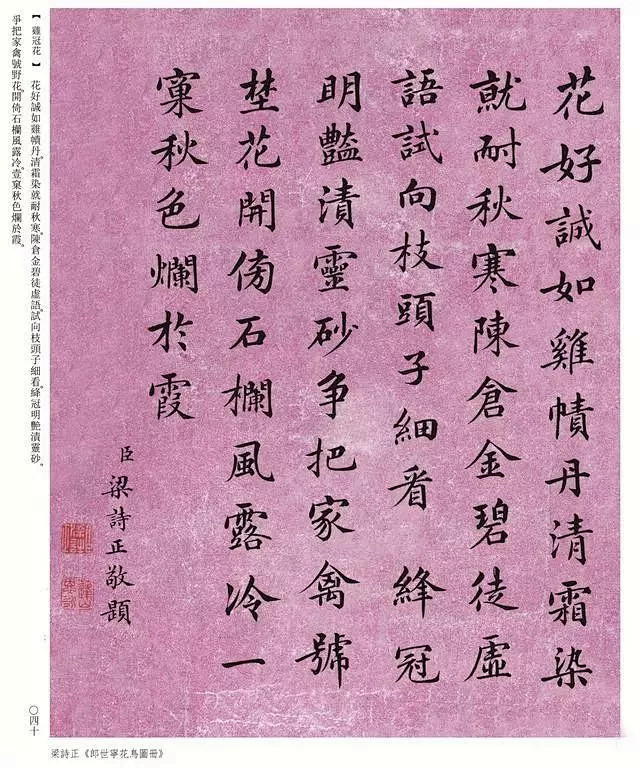 花好誠如雞幘丹清霜染
就耐秋寒陳倉金碧徒虛
語試向枝頭子細看 絳冠
明豔漬靈砂爭把家禽號
埜花開傍石欄風露冷一
窠秋色爛於霞
臣梁詩正敬題
【雞冠花】 花好誠如雞幘丹。清霜染就耐秋寒。陳倉金碧徒虛語。試向枝頭子細看。絳冠明艷漬靈砂。
爭把家禽號野花。開倚石欄風露冷。壹窠秋色爛於霞。
〇四十
梁詩正《郎世寧花鳥圖冊》